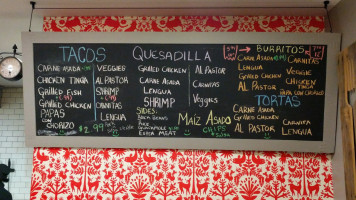 TACOS
CARNE ASADA
CHICKEN TINGA
Grilled FISH
Grilled CHICKEN
PAPAS CON CHORIZO
VEGGIES
Al PASTOR
SHRIMP
CARNITAS
LENGUA
2.99
QUESADILLA
Grilled CHICKEN
CARNE ASADA
LENGUA
SHRIMP
Al PASTOR
CARNITAS
Veggies
SIDES
RICE
GUACAMOLE
EXTRA MEAT
MAIZ ASADO
CHIPS
BURRITOS
CARNE ASADA
LENGUA
Grilled CHICKEN
AL PASTOR
CARNITAS
VEGGIE
CHICKEN
TINGA
PAPA CON CHORIZO
TORTAS
CARNE ASADA
Grilled CHICKEN
AL PASTOR
CARNITA
LENGUA